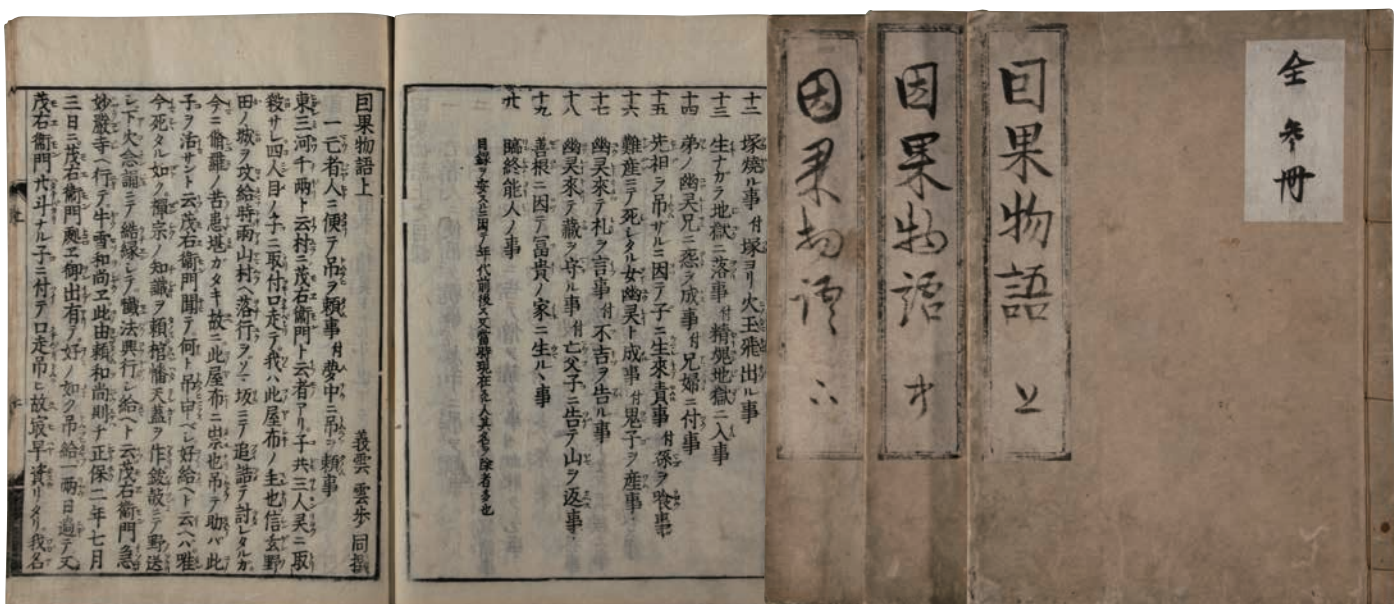 全参冊
因果物語 上
因果物語 中
因果物語 下
十二 塚燒ル事 付塚ヨリ火玉飛出ル事
十三 生ナガラ地獄ニ落事 付精魂地獄ニ入事
十四 弟ノ幽灵兄ニ怨ヲ成事 付兄婦ニ付事
十五 先祖ヲ吊サルニ因テ子ニ生來責事 付孫ヲ喰事
十六 難産ニテ死シタル女幽灵ト成事 付鬼子ヲ産事
十七 幽灵來テ礼ヲ言事 付不吉ヲ告ル事
十八 幽灵來テ藏ヲ守ル事 付亡父子ニ告テ山ヲ返事
十九 善根ニ因テ冨貴ノ家ニ生ルヽ事
廿 臨終能人ノ事
因果物語上
義雲 雲歩 同撰
一 亡者人ニ便テ吊ヲ頼事 付夢中ニ吊ヲ頼事
東三河千両ト云村ニ茂右衛門ト云者アリ子共三人灵ニ取
殺サレ四人目ノ子ニ取付口走テ我ハ此屋布ノ主也信玄野
田ノ城ヲ攻給時両山村ヘ落行ヲソ坂ニテ追詰テ討レタルカ
今ニ脩羅ノ苦患堪ガタキ故ニ此屋布ニ祟也吊テ助バ此
子ヲ活サント云茂右衛門聞テ何ト吊申ベシ好給ヘト云ヘバ唯
今死タル如ク禪宗ノ知識ヲ頼棺幡天蓋ヲ作鈸鼓ニテ野送
シ下火念誦ニテ結縁シテ懺法興行シ給ヘト云茂右衛門急
妙嚴寺ヘ行テ牛雪和尚エ此由頼和尚則チ正保二年七月
三日ニ茂右衛門處エ御出有テ好ノ如ク吊給一両日過テ又
茂右衛門廿斗ナル子ニ付テ口走吊ヒ故寂早資リタリ我名